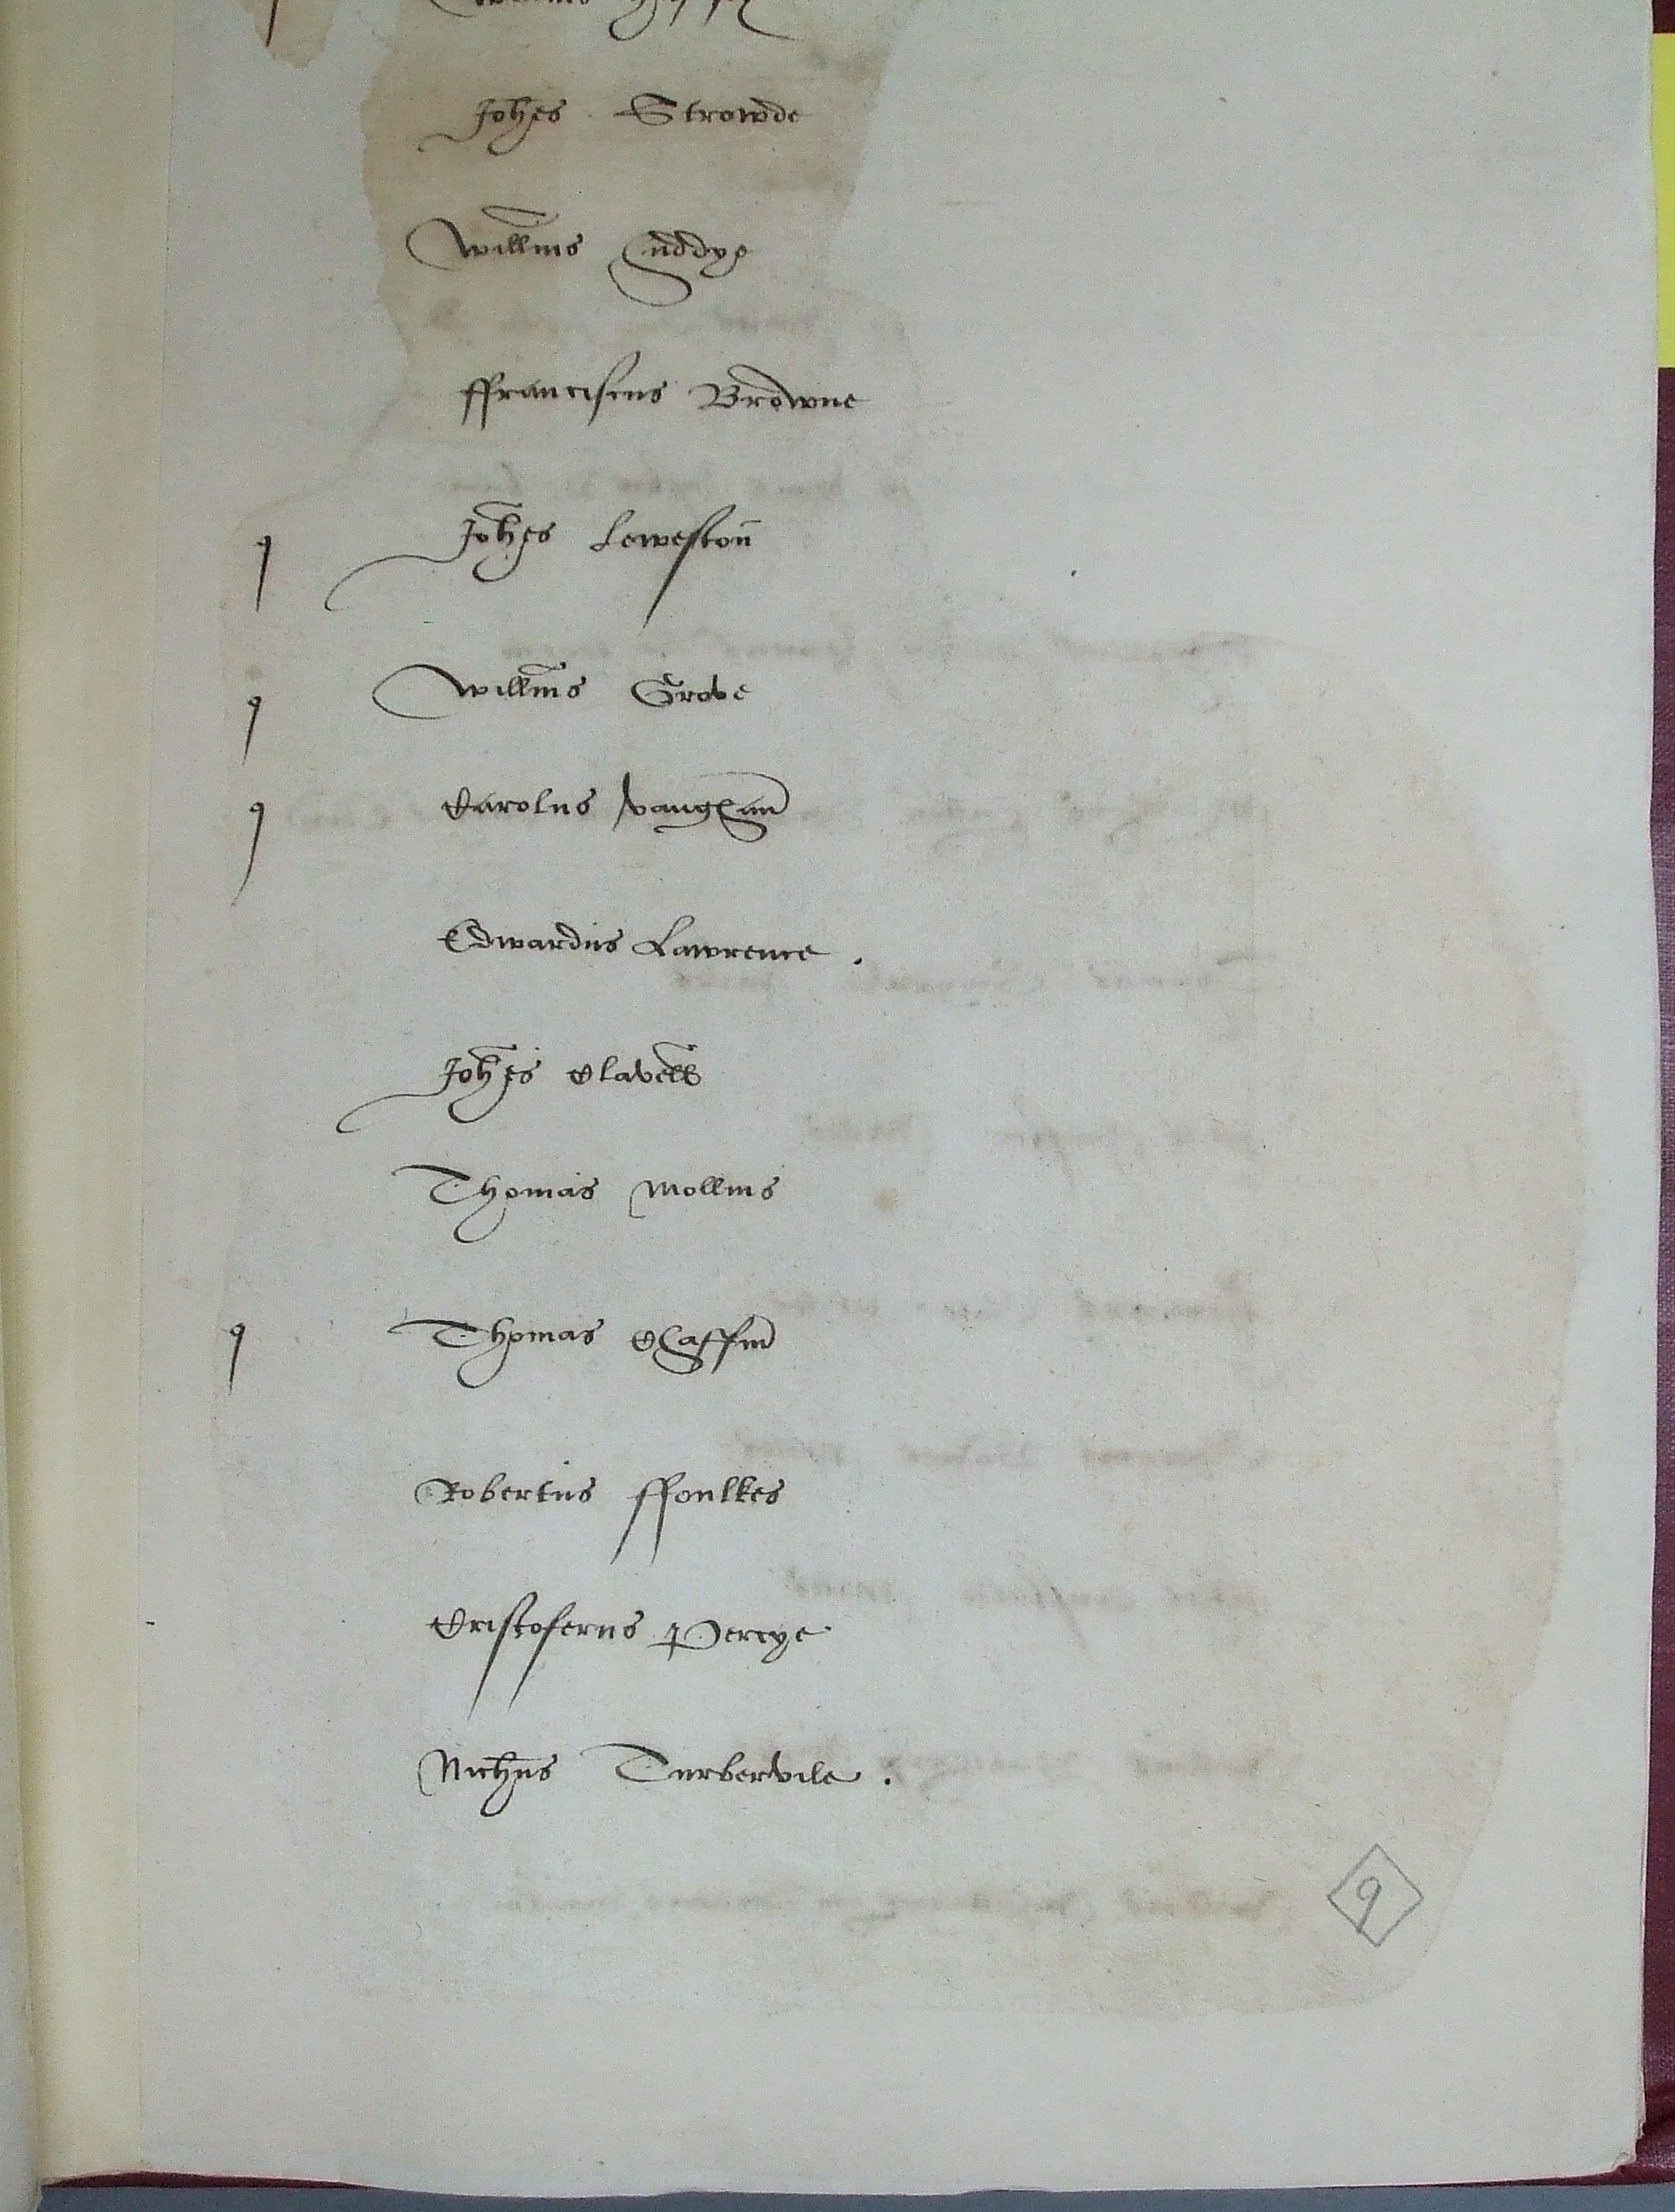 Johēs Strowde
Willm̄s huddye
ffranciscus Browne
q Johēs Leweston̄
q Willm̄s Grove
q Carolus Vaughan
Edwardus Lawrence .
Johēs Clavell
Thomas Mollins
q Thomas Chaffin
Robertus ffoulkes
Cristoferus Percye
Nichūs Turbervile .
9